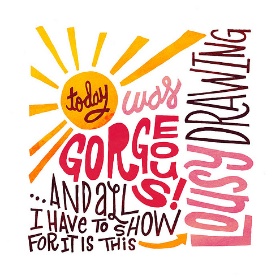 today
was
GORGEOUS!
...AND ALL
I HAVE TO SHOW
FOR IT IS THIS
LOUSY DRAWING